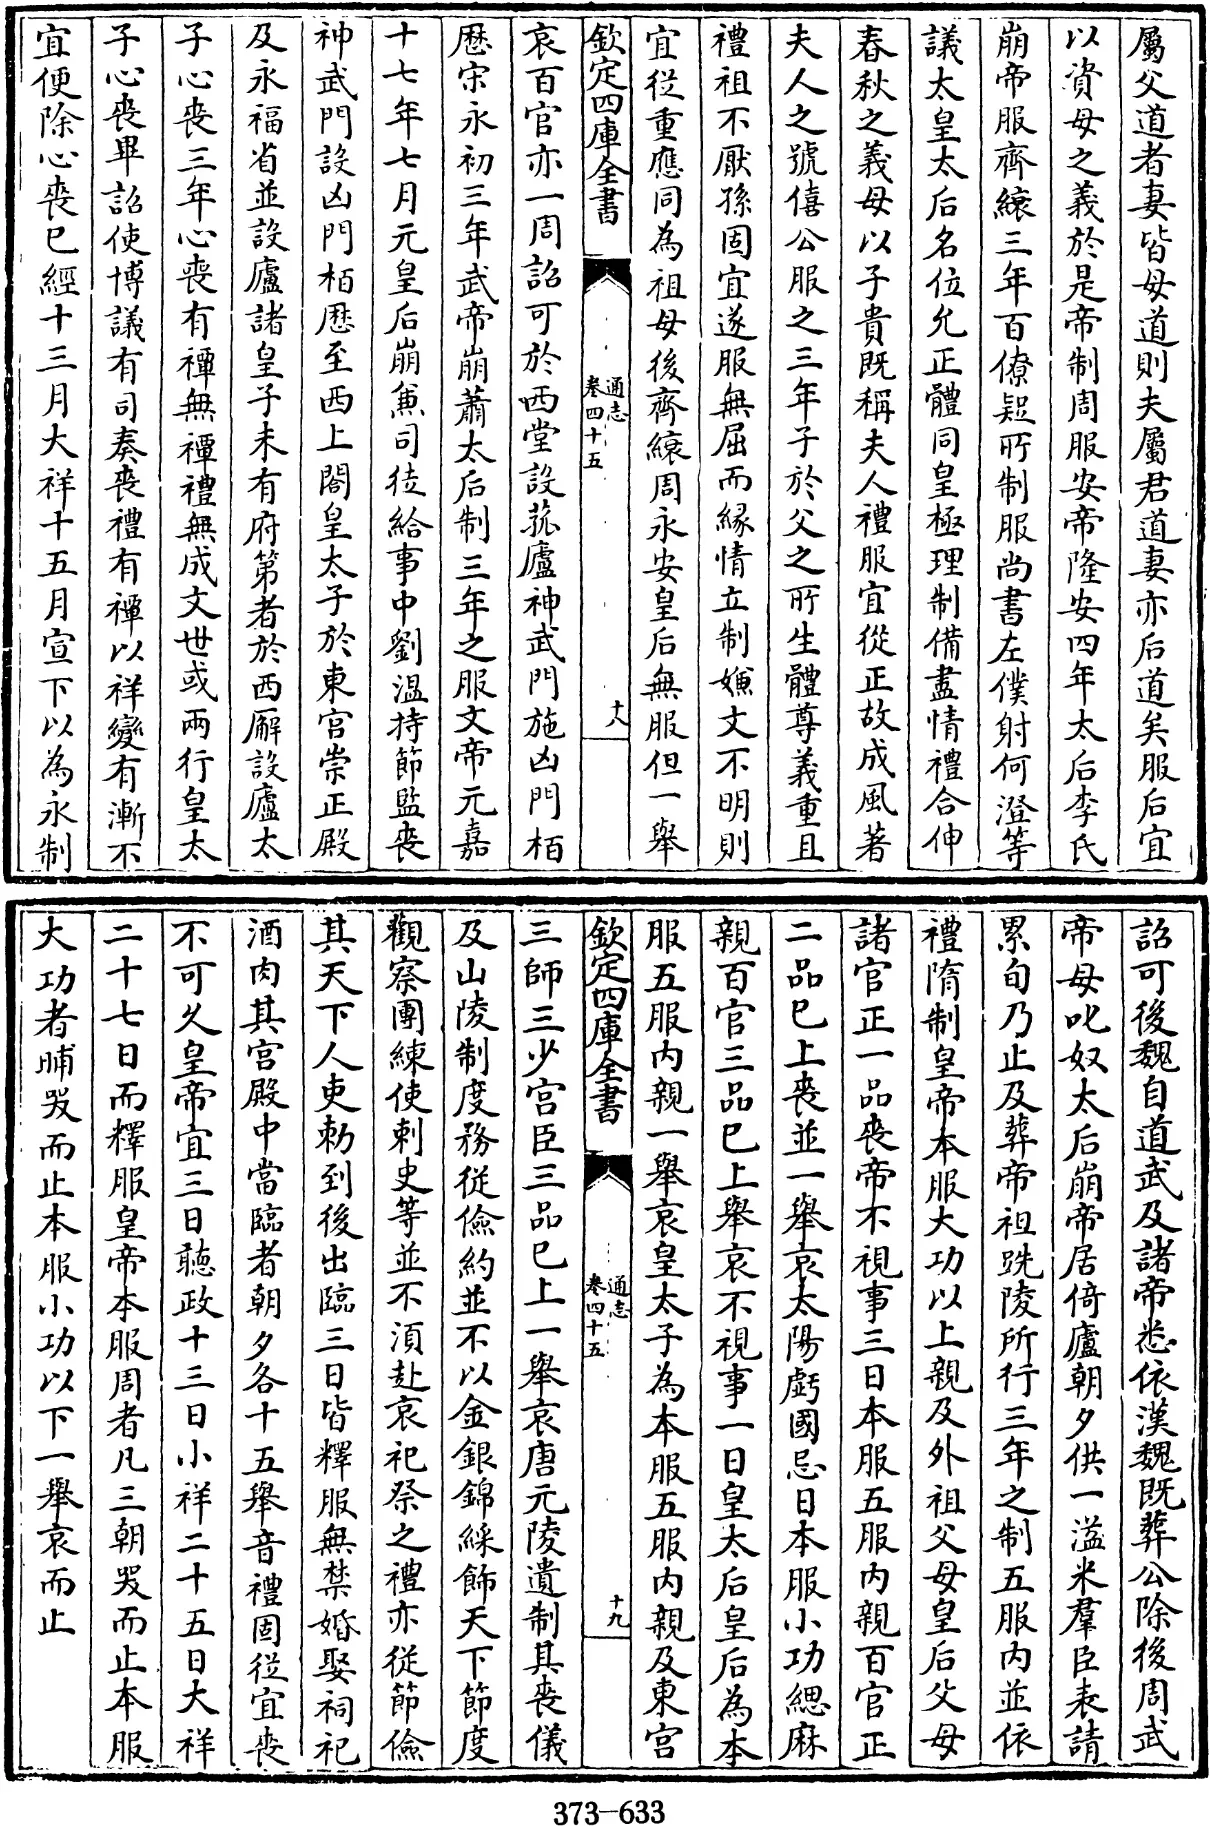 屬父道者妻皆母道則夫屬君道妻亦后道矣服后宜
以資母之義於是帝制周服安帝隆安四年太后李氏
崩帝服齊縗三年百僚疑所制服尚書左僕射何澄等
議太皇太后名位允正體同皇極理制備盡情禮合伸
春秋之義母以子貴既稱夫人禮服宜從正故成風著
夫人之號僖公服之三年子於父之所生體尊義重且
禮祖不厭孫固宜遂服無屈而緣情立制嫌文不明則
宜從重應同為祖母後齊縗周永安皇后無服但一舉
欽定四庫全書
通志
卷四十五
十八
哀百官亦一周詔可於西堂設菰廬神武門施凶門栢
歴宋永初三年武帝崩蕭太后制三年之服文帝元嘉
十七年七月元皇后崩兼司徒給事中劉溫持節監喪
神武門設凶門栢歴至西上閤皇太子於東宫崇正殿
及永福省並設廬諸皇子未有府第者於西廨設廬太
子心喪三年心喪有禫無禫禮無成文世或兩行皇太
子心喪畢詔使博議有司奏喪禮有禫以祥變有漸不
宜便除心喪已經十三月大祥十五月宣下以為永制
詔可後魏自道武及諸帝悉依漢魏既葬公除後周武
帝母叱奴太后崩帝居倚廬朝夕供一溢米羣臣表請
累旬乃止及葬帝袒跣陵所行三年之制五服内並依
禮隋制皇帝本服大功以上親及外祖父母皇后父母
諸官正一品喪帝不視事三日本服五服内親百官正
二品已上喪並一舉哀太陽虧國忌日本服小功緦麻
親百官三品已上舉哀不視事一日皇太后皇后為本
服五服内親一舉哀皇太子為本服五服内親及東宫
欽定四庫全書
通志
卷四十五
十九
三師三少宫臣三品已上一舉哀唐元陵遺制其喪儀
及山陵制度務從儉約並不以金銀錦綵飾天下節度
觀察團練使刺史等並不須赴哀祀祭之禮亦從節儉
其天下人吏勅到後出臨三日皆釋服無禁婚娶祠祀
酒肉其宫殿中當臨者朝夕各十五舉音禮固從宜喪
不可久皇帝宜三日聽政十三日小祥二十五日大祥
二十七日而釋服皇帝本服周者凡三朝哭而止本服
大功者晡哭而止本服小功以下一舉哀而止
373-633